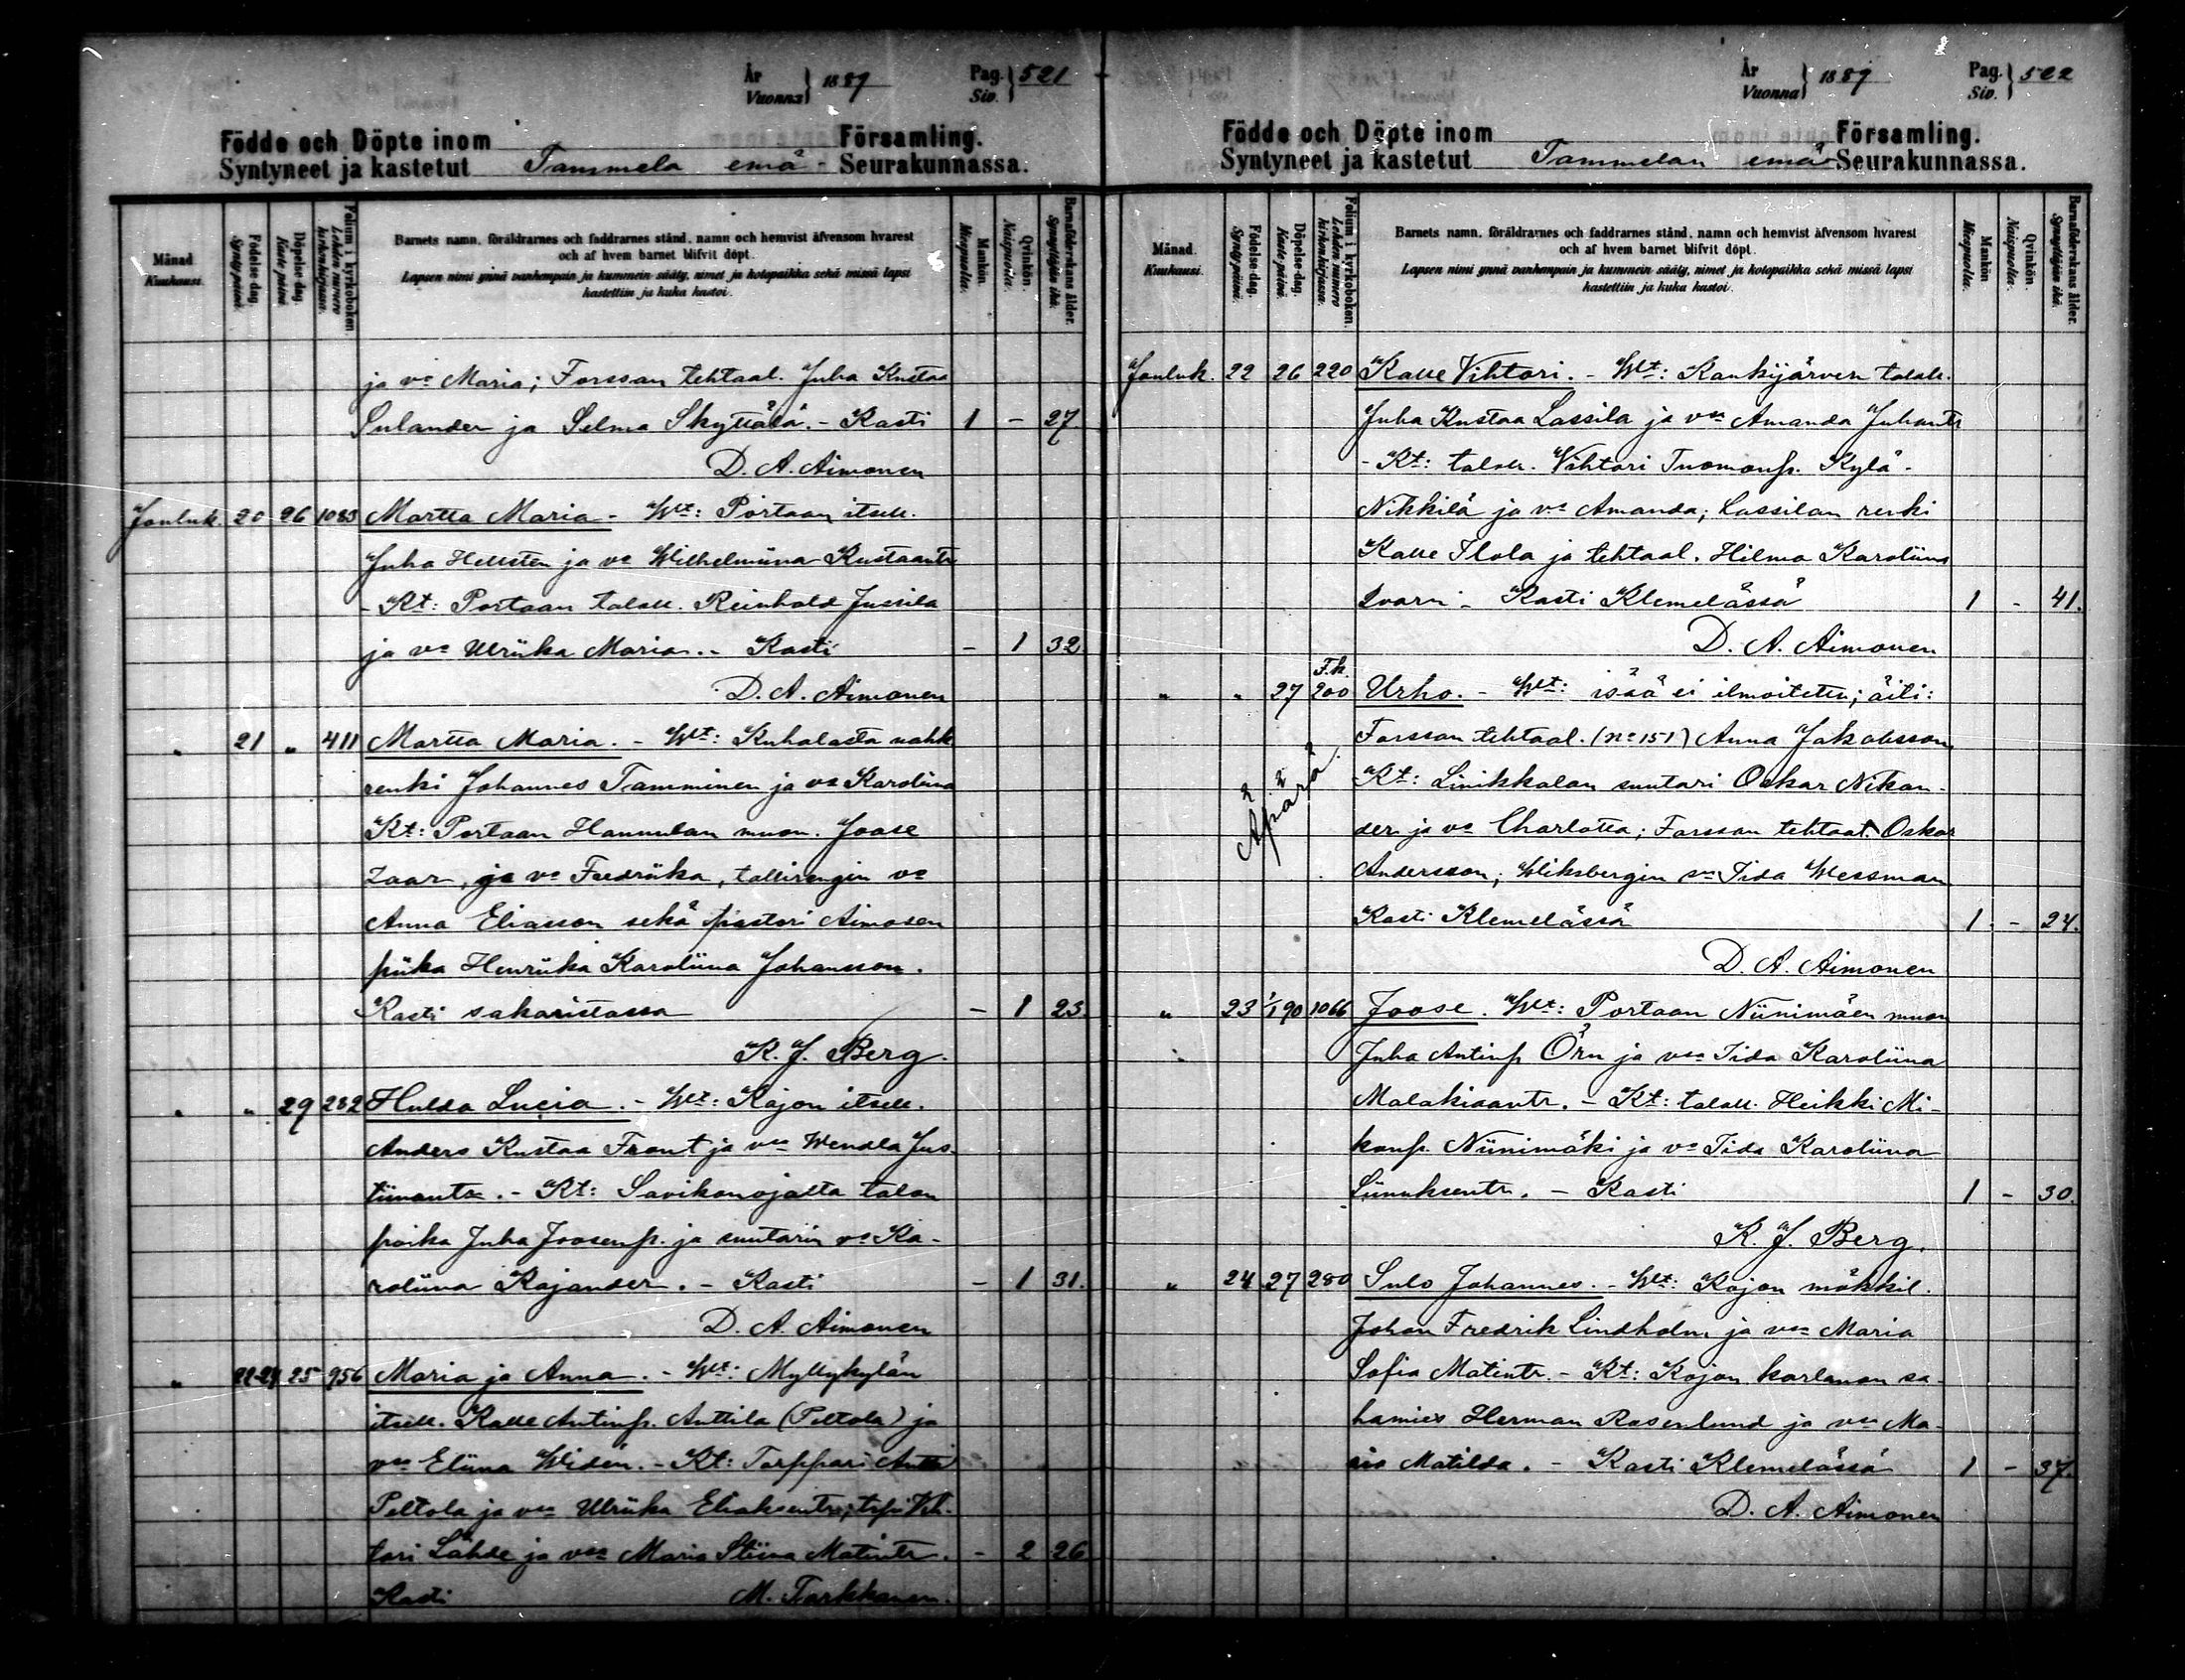 År
Vuonna } 1889 Pag.
Siv. } 521
Födde och Döpte inom Församling.
Syntyneet ja kastetut Tammela emä - Seurakunnassa.
Månad
Kuukausi.
Födelse-dag.
Syntypäivä.
Döpelse-dag.
Kaste-päivä.
Folium i kyrkoboken.
Lehden numero
kirkonkirjassa.
Barnets namn, föräldrarnes och faddrarnes stånd, namn och hemvist äfvensom hvarest
och af hvem barnet blifvit döpt.
Lapsen nimi ynnä vanhempain ja kummein sääty, nimet ja kotopaikka sekä missä lapsi
kastettiin ja kuka kastoi.
Mankön.
Miespuolia.
Qvinkön.
Naispuolia.
Barnaföderskans ålder.
Synnyttäjän ikä.
ja vo Maria; Forssan tehtaal. Juha Kustaa
Sulander ja Selma Skyttälä. - Kasti 1 - 27
D. A. Aimonen
Jouluk. 20 26 1083 Martta Maria - Wt: Portaan itsell.
Juha Hellsten ja vo Wilhelmiina Kustaantr
- Kt: Portaan taloll. Reinhold Jussila
ja vo Ulriika Maria. - Kasti - 1 32
D. A. Aimonen
" 21 " 411 Martta Maria. - Wt: Kuhalasta nahk
renki Johannes Tamminen ja vo Karoliina
Kt: Portaan Hannulan muon. Joose
Zaar, ja vo Fredriika, tallirengin vo
Anna Eliasson sekä pastori Aimosen
piika Henriika Karoliina Johansson.
Kasti sakaristassa - 1 23
K. J. Berg.
" " 29 282 Hulda Lucia. - Wt: Kojon itsell.
Anders Kustaa Front ja vo Wendla Jus-
tiinantr. - Kt: Savikonojalta talon
poika Juha Joosenp. ja suutarin vo Ka-
roliina Kajander. - Kasti - 1 31.
D. A. Aimonen
" 22-24 25 956 Maria ja Anna. - Wt: Myllykylän
itsell. Kalle Antinp. Anttila (Peltola) ja
vo Eliina Widén. - Kt: Torppari Antti
Peltola ja vo Ulriika Eliaksentr; trp. Vih-
tori Lähde ja vo Maria Stiina Matintr. - 2 26
Kasti M. Tarkkanen.
År
Vuonna } 1889 Pag.
Siv. } 522
Födde och Döpte inom Församling.
Syntyneet ja kastetut Tammelan emä Seurakunnassa.
Månad.
Kuukausi.
Födelse-dag.
Syntypäivä.
Döpelse-dag.
Kaste-päivä.
Folium i kyrkoboken.
Lehden numero
kirkonkirjassa.
Barnets namn, föräldrarnes och faddrarnes stånd, namn och hemvist äfvensom hvarest
och af hvem barnet blifvit döpt.
Lapsen nimi ynnä vanhempain ja kummein sääty, nimet ja kotopaikka sekä missä lapsi
kastettiin ja kuka kastoi.
Mankön
Miespuolia.
Qvinkön.
Naispuolia.
Barnaföderskans ålder.
Synnyttäjän ikä.
Jouluk. 22 26 220 Kalle Vihtori. - Wt: Kaukijärven taloll.
Juha Kustaa Lassila ja vo Amanda Juhantr
- Kt: taloll. Vihtori Tuomonp. Kylä-
Nikkilä ja vo Amanda; Lassilan renki
Kalle Ilola ja tehtaal. Hilma Karoliina
Qvarn - Kasti Klemelässä 1 - 41.
D. A. Aimonen
" " 27 F.k. 200 Urho. - Wt: isää ei ilmoitettu; äiti:
Forssan tehtaal. (no 151) Anna Jakobsson
Äpärä.
Kt: Linikkalan suutari Oskar Nikan-
der ja vo Charlotta; Forssan tehtaal. Oskar
Andersson; Wiksbergin Iida Wessman
Kasti Klemelässä 1. - 24.
D. A. Aimonen
" 23 1/1 90 1066 Joose. Wt: Portaan Niinimäen muon
Juha Antinp Örn ja vo Iida Karoliina
Malakiaantr. - Kt: taloll. Heikki Mi-
konp. Niinimäki ja vo Iida Karoliina
Liinuksentr. - Kasti 1 - 30.
K. J. Berg.
" 24 27 280 Sulo Johannes. - Wt: Kojon mökkil.
Johan Fredrik Lindholm ja vo Maria
Sofia Matintr. - Kt: Kojon kartanon sa-
hamies Herman Rosenlund ja vo Ma-
ria Matilda. - Kasti Klemelässä 1 - 37.
D. A. Aimonen